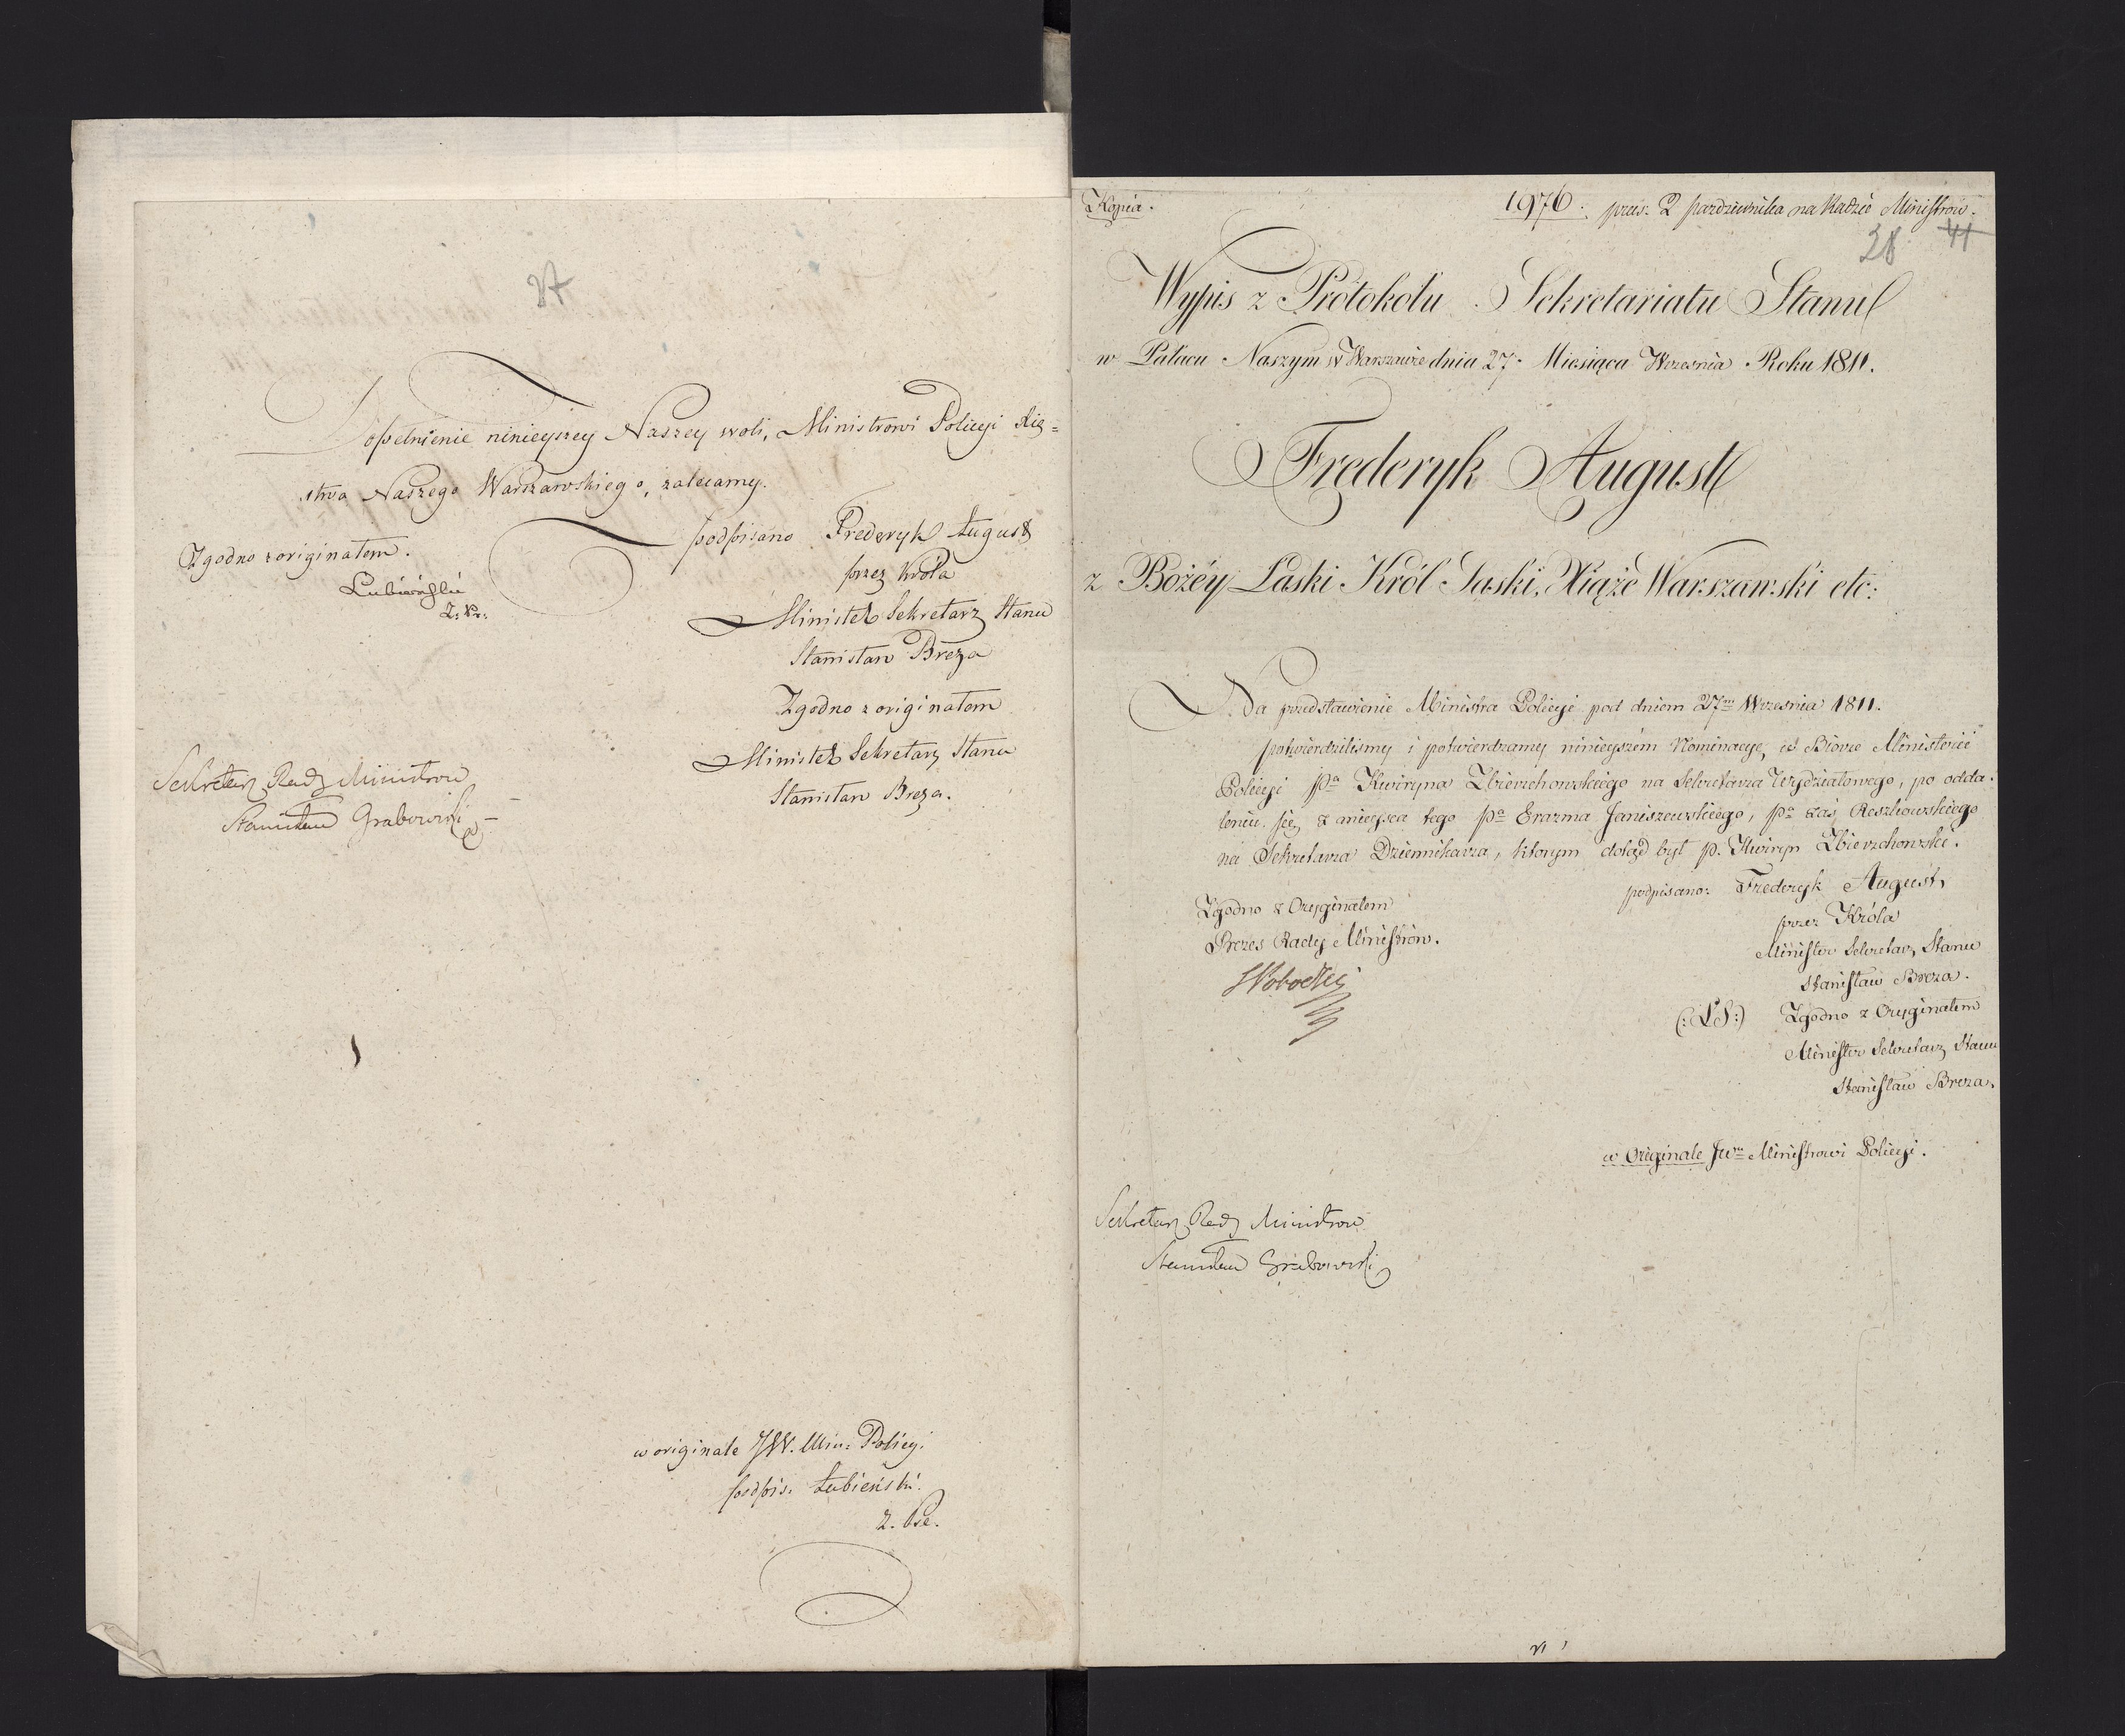 Dopełnienie ninieyszey Naszey woli, Ministrowi Policyi Xię=
stwa Naszego Warszawskiego, zalecamy.
podpisano Frederyk August
przez Króla
Minister Sekretarz Stanu
Stanisław Breza
Zgodno z originałem
Minister Sekretarz Stanu
Stanisław Breza.
Zgodno z originałem.
Łubieński
Sekretarz Rady Ministrow
Stanisław Grabowski
w originale JW. Min: Policyi
podpis. Łubieński.
Kopia.
1976. prez: 2 pazdziernika na Radzie Ministrów.
28 41
Wypis z Protokołu Sekretariatu Stanu
w Pałacu Naszym w Warszawie dnia 27. Miesiąca Wrzesnia Roku 1811.
Frederyk August
z Bożéy Łaski Król Saski, Xiąże Warszawski etc:
Na przedstawienie Ministra Policyi pod dniem 27m Wrzesnia 1811.
potwierdziliśmy i potwierdzamy ninieyszém Nominacyę, w Biorze Ministerii
Policyi Pa Kwiryna Zbierzchowskiego na Sekretarza Wydziałowego, po odda-
leniu się z mieysca tego Pa Erazma Janiszewskiego, Pa zaś Reszkowskiego
na Sekretarza Dziennikarza, którym dotąd był p. Kwiryn Zbierzchowski.
podpisano: Frederyk August,
przez Króla
Minister Sekretarz Stanu
Stanisław Breza.
(:LS:) Zgodno z Oryginałem
Minister Sekretarz Stanu
Stanisław Breza.
Zgodno z Oryginałem
Prezes Rady Ministrów.
w Originale JWu Ministrowi Policyi.
Sekretarz Rady Ministrow
Stanisław Grabowski